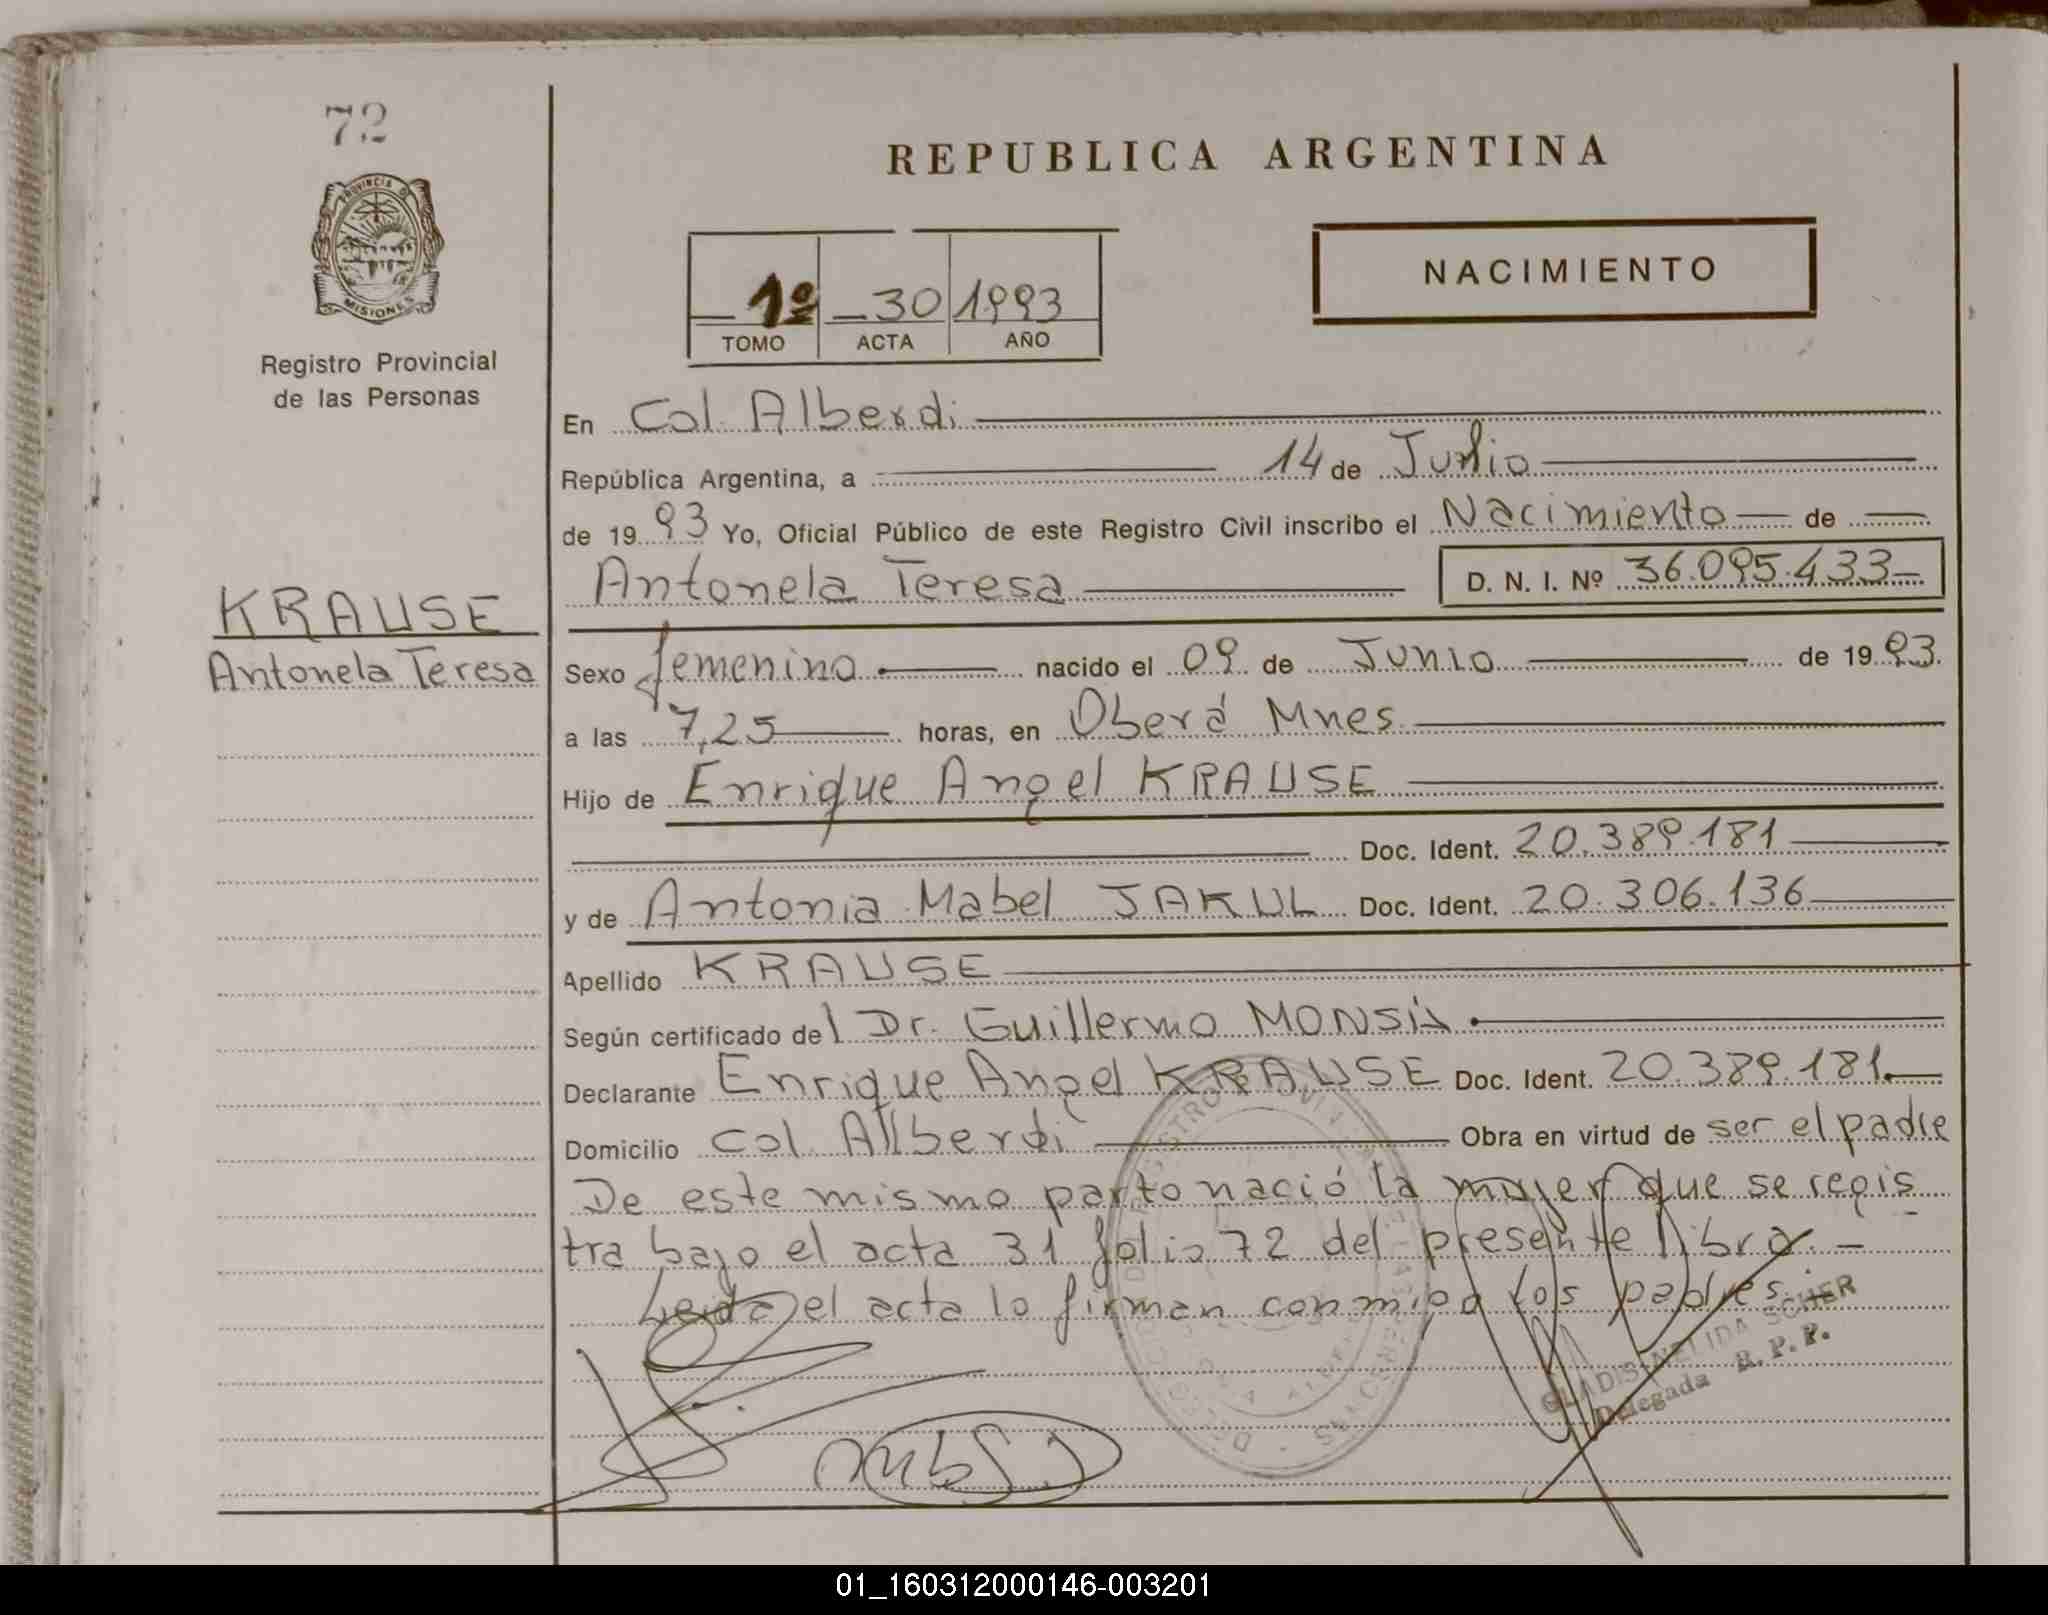 72
REPUBLICA ARGENTINA
PROVINCIA D
MISIONES
Registro Provincial
de las Personas
1º 30 1993
TOMO ACTA AÑO
NACIMIENTO
En Col. Alberdi
República Argentina, a 14 de Junio
de 19 93 Yo, Oficial Público de este Registro Civil inscribo el Nacimiento de
Antonela Teresa D. N. I. Nº 36.095.433
KRAUSE
Antonela Teresa
Sexo femenino nacido el 09 de Junio de 19 93.
a las 7,25 horas, en Oberá Mnes.
Hijo de Enrique Angel KRAUSE
Doc. Ident. 20.389.181
y de Antonia Mabel JAKUL Doc. Ident. 20.306.136
Apellido KRAUSE
Según certificado del Dr. Guillermo
Declarante Enrique Angel KRAUSE Doc. Ident. 20.389.181.
Domicilio Col. Alberdi Obra en virtud de ser el padre
De este mismo parto nació la mujer que se regis
tra bajo el acta 31 folio 72 del presente libro.-
Leida el acta lo firman conmigo los padres.-
GLADIS NELIDA SCHER
Delegada R. P. P.
01_160312000146-003201